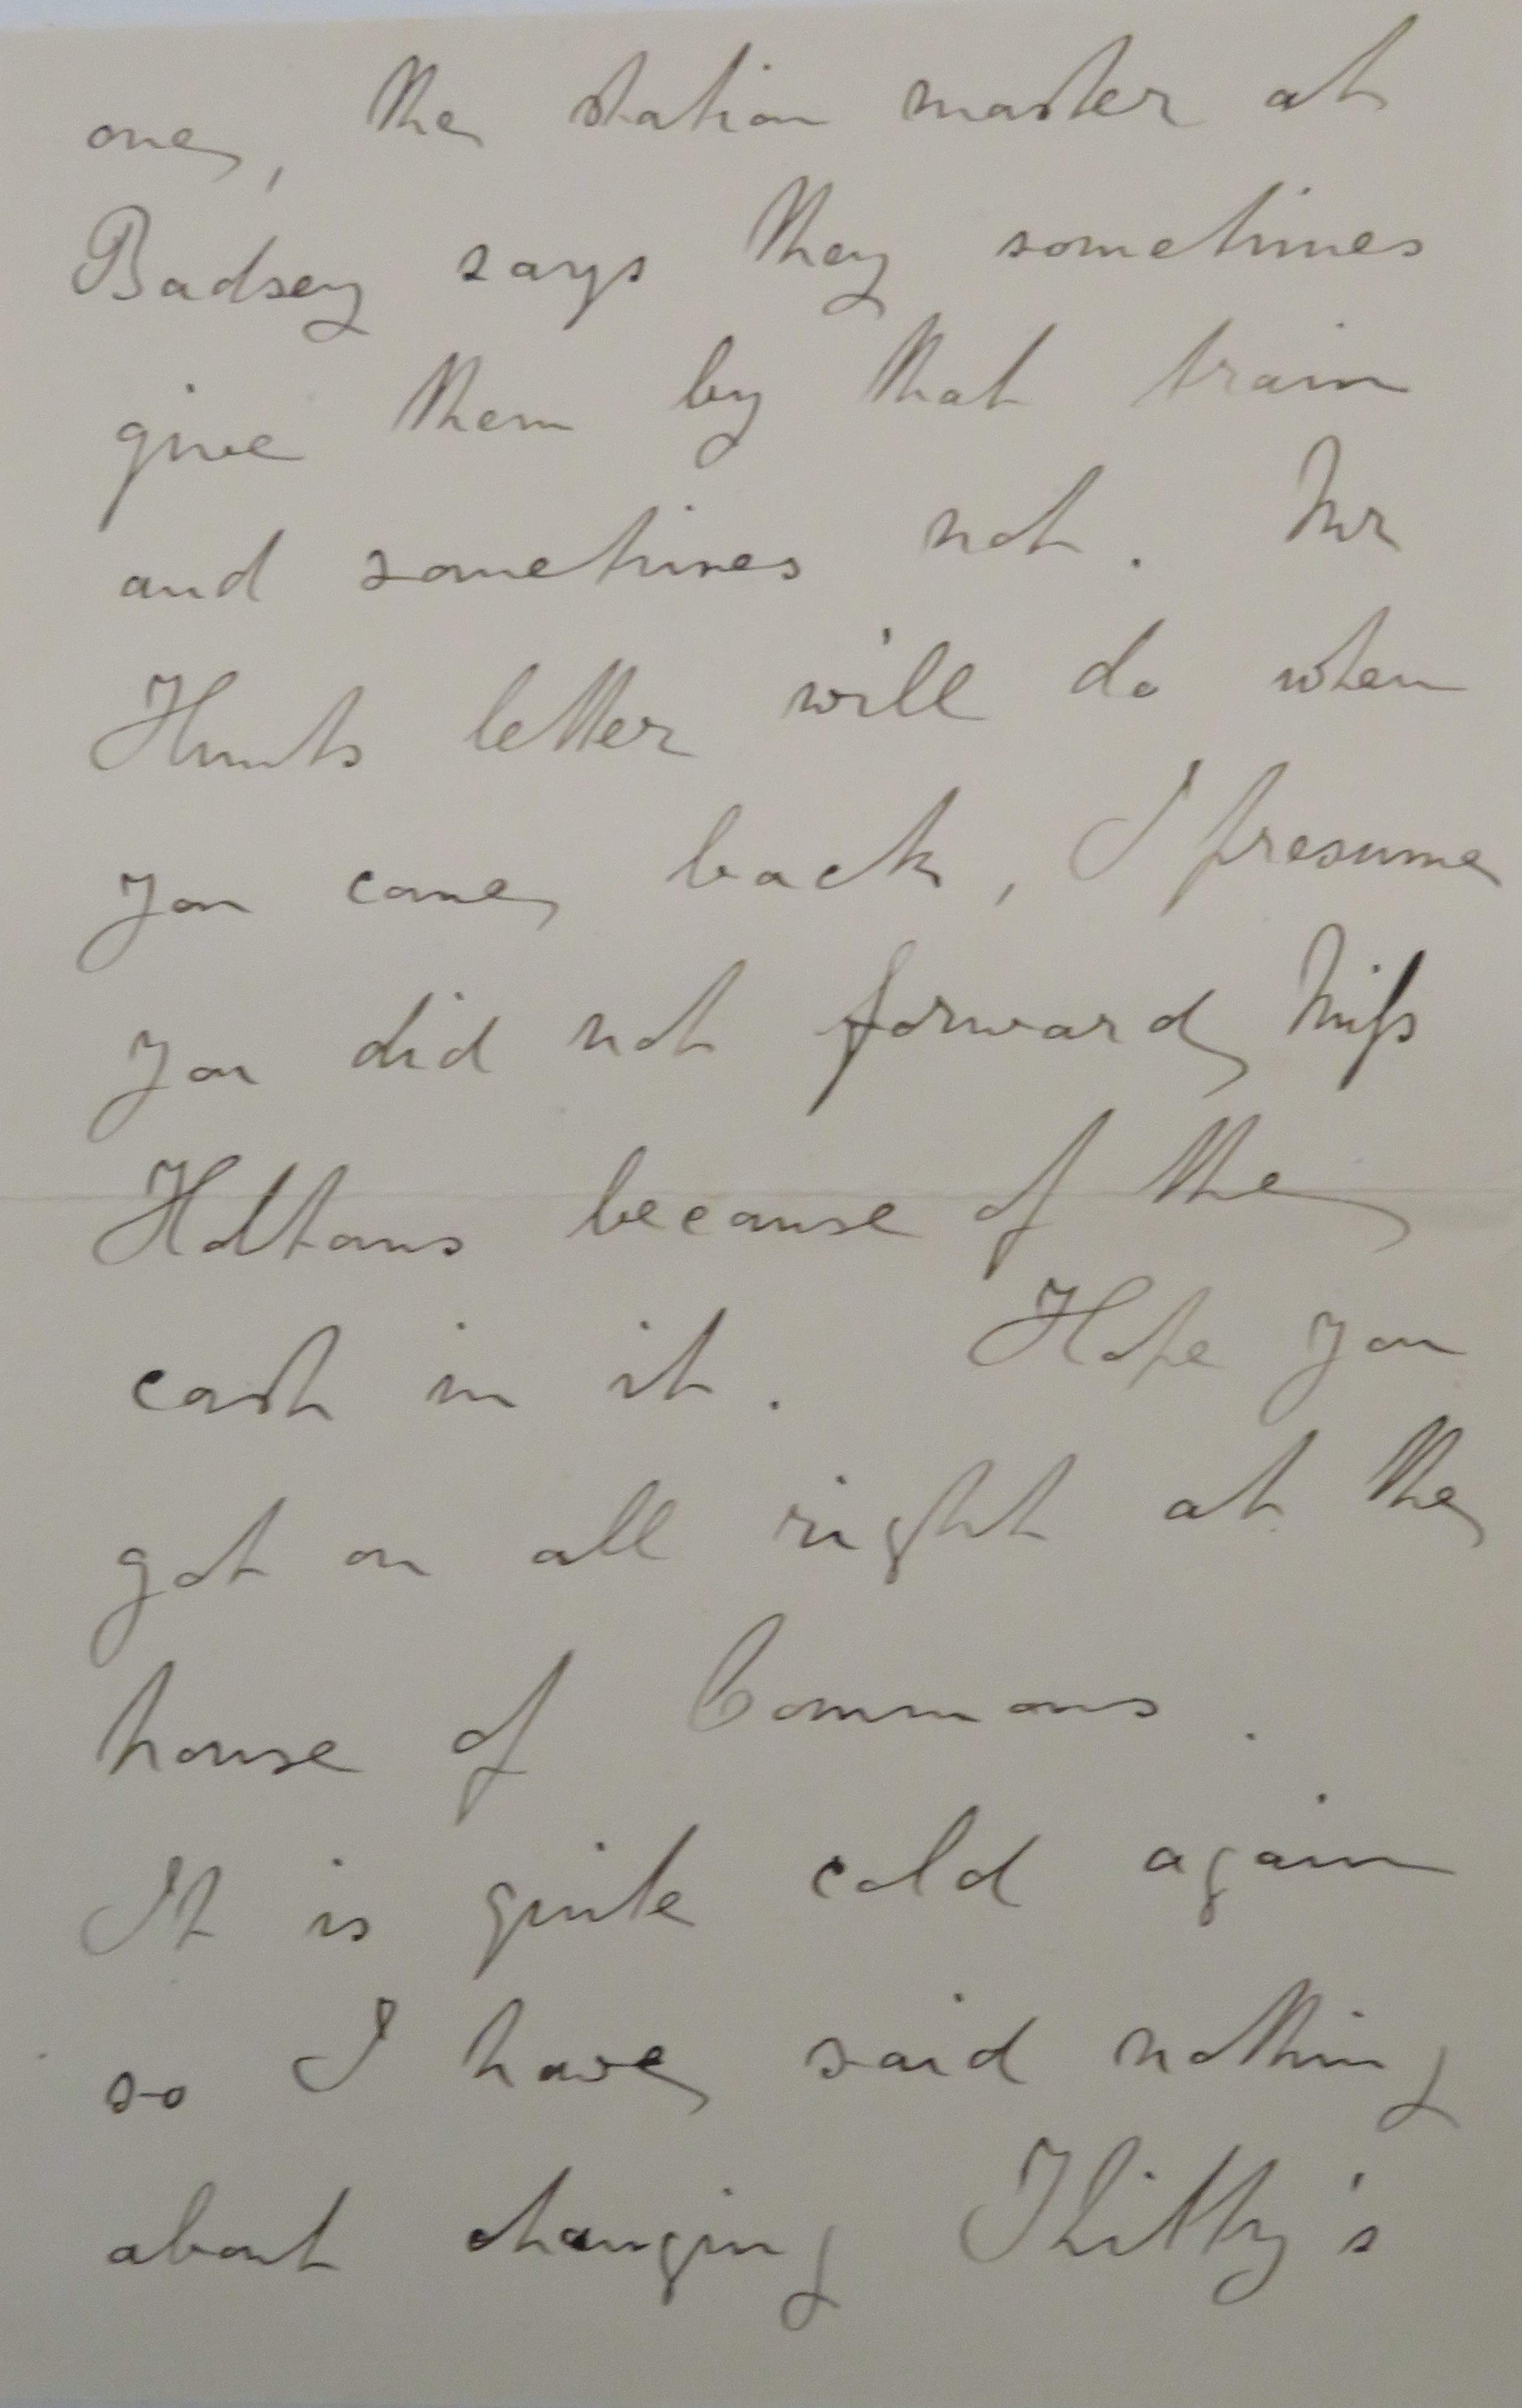 one, the station master at
Badsey says they sometimes
give them by that train
and sometimes not. Mr
Hunts letter will do when
you come back, I presume
you did not forward Miss
Holtons because of the
cash in it. Hope you
got on all right at the
house of Commons.
It is quite cold again
so I have said nothing
about changing Kitty's